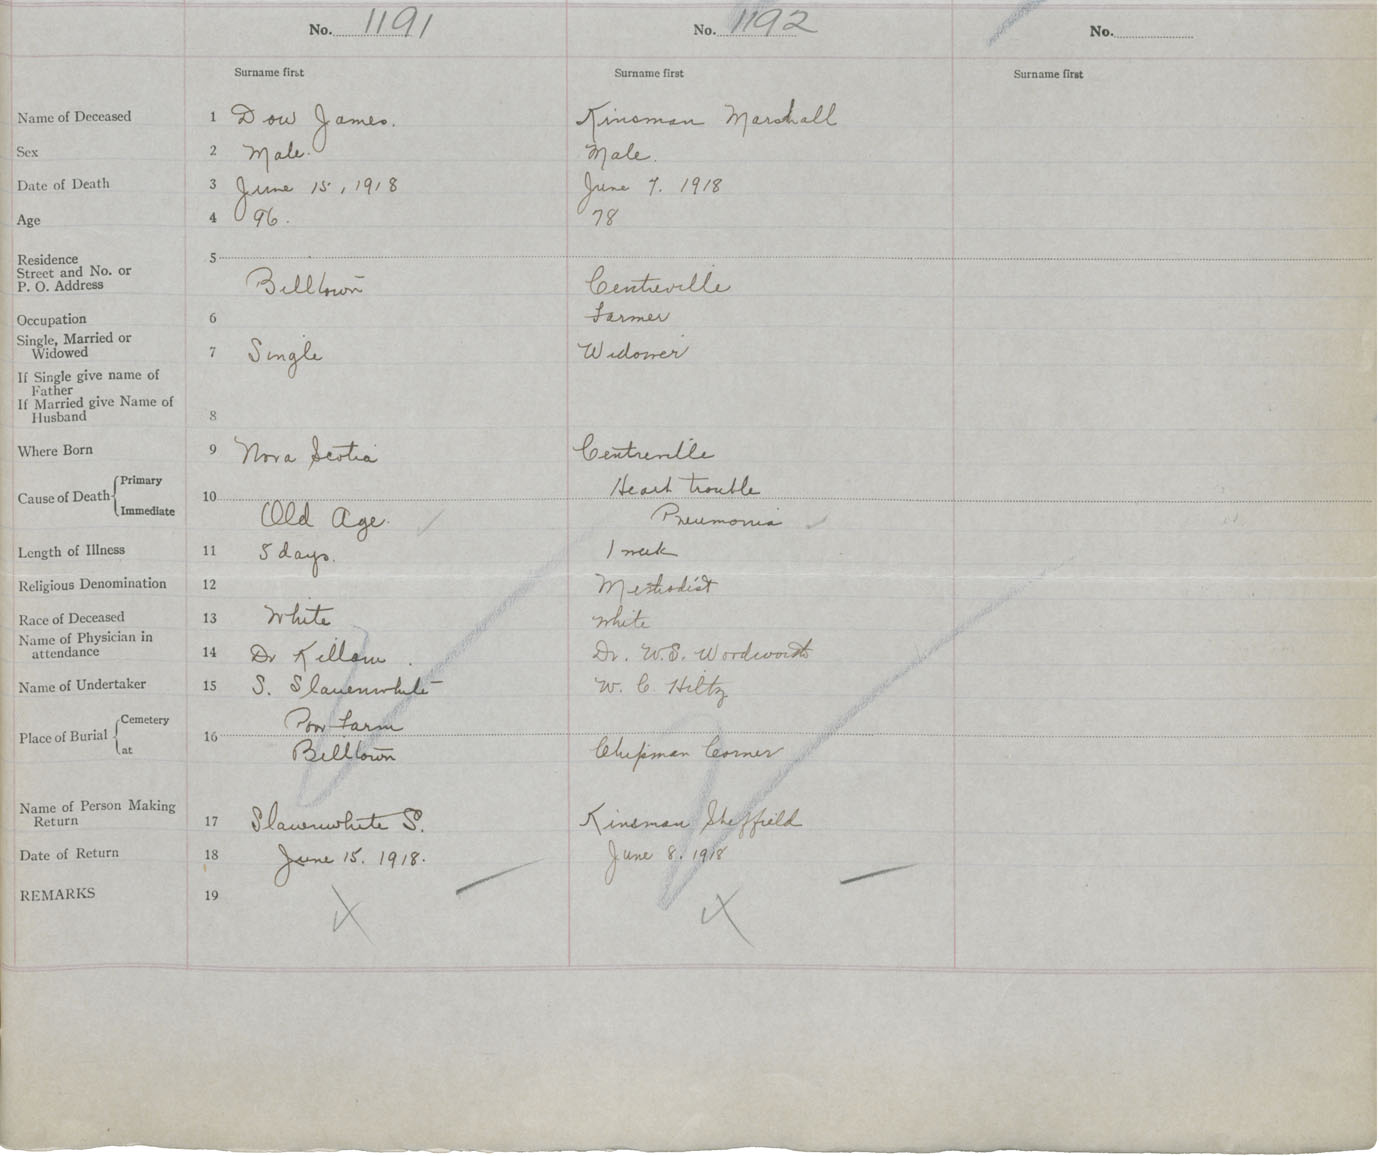 No. 1191 No. 1192 No.
Surname first Surname first Surname first
Name of Deceased 1 Dow James. Kinsman Marshall
Sex 2 Male. Male.
Date of Death 3 June 15, 1918 June 7. 1918
Age 4 96. 78
Residence 5
Street and No. or
P. O. Address Billtown Centreville
Occupation 6 Farmer
Single, Married or
Widowed 7 Single Widower
If Single give name of
Father
If Married give Name of
Husband 8
Where Born 9 Nova Scotia Centreville
Primary Heart trouble
Cause of Death 10
Immediate Old Age. Pneumonia
Length of Illness 11 5 days. 1 week
Religious Denomination 12 Methodist
Race of Deceased 13 White white
Name of Physician in
attendance 14 Dr Killam. Dr. W.S. Woodworth
Name of Undertaker 15 S. Slauenwhite W. C. Hiltz
Cemetery Poor Farm
Place of Burial 16
at Billtown Chipman Corner
Name of Person Making
Return 17 Slauenwhite S. Kinsman Sheffield
Date of Return 18 June 15. 1918. June 8. 1918
REMARKS 19